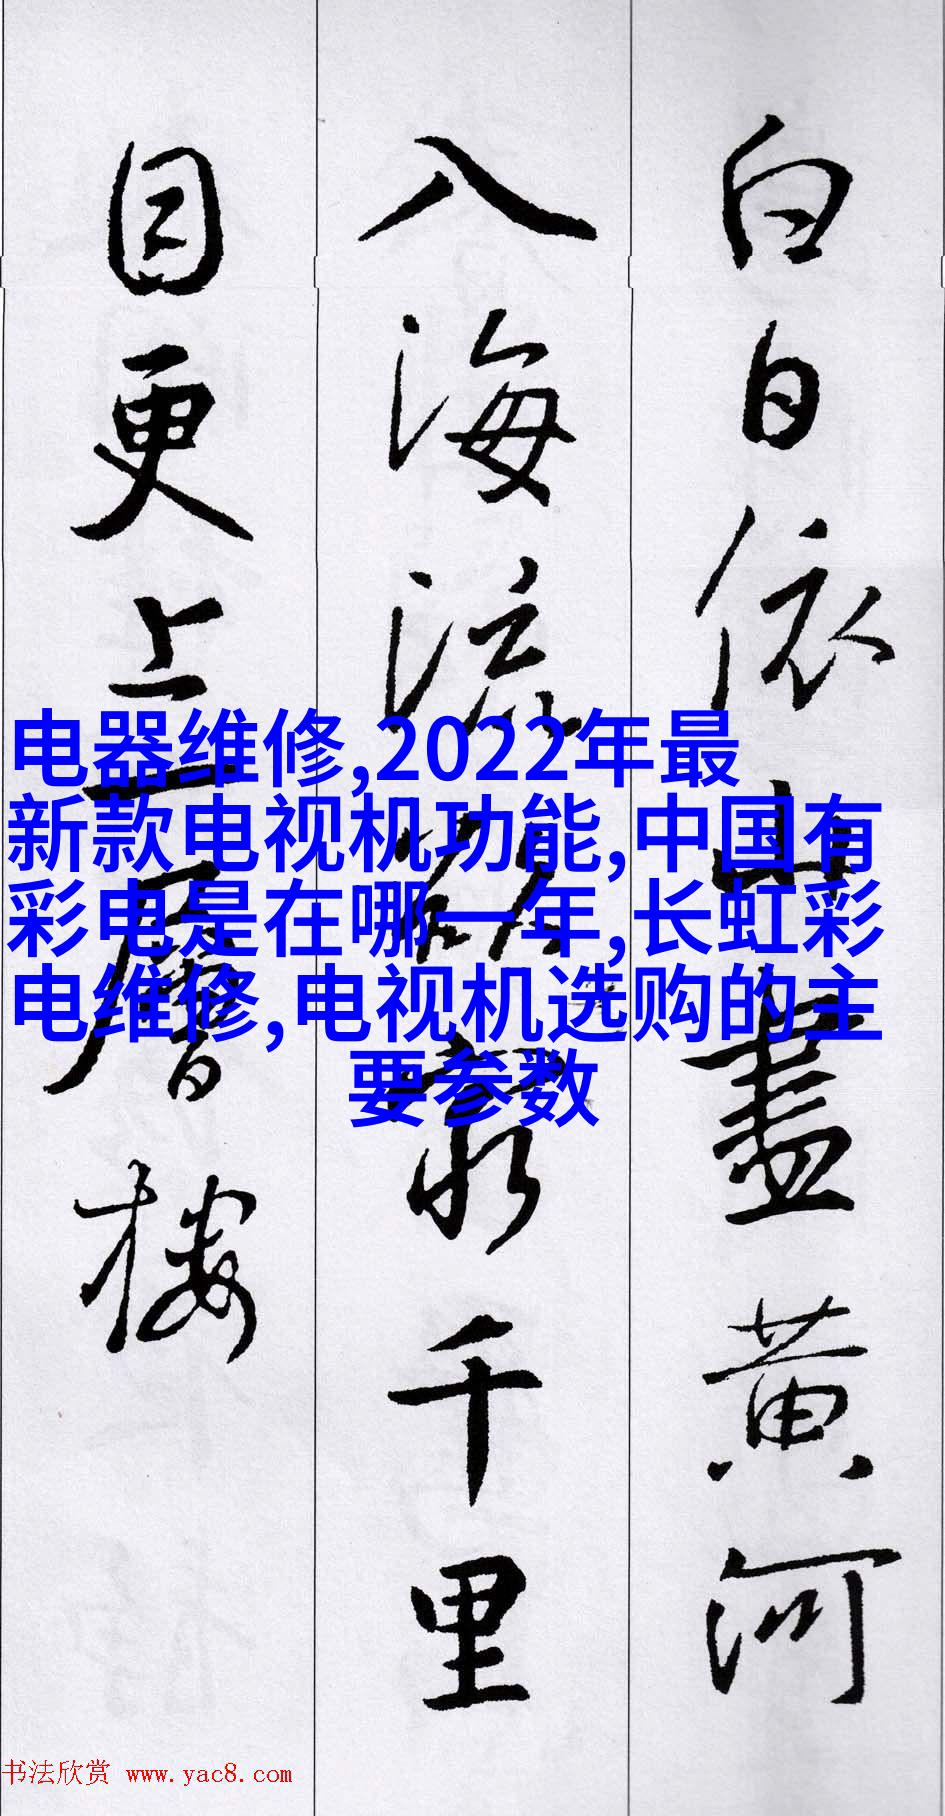 白日依山盡黄河
入海流欲窮千里
目更上一層樓
电器维修,2022年最
新款电视机功能,中国有
彩电是在哪一年,长虹彩
电维修,电视机选购的主
要参数
书法欣赏 www.yac8.com